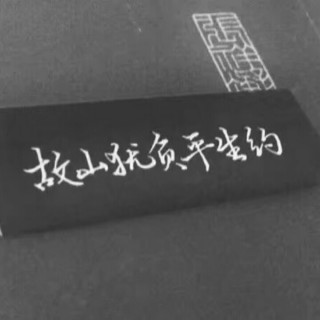 故山犹负平生约